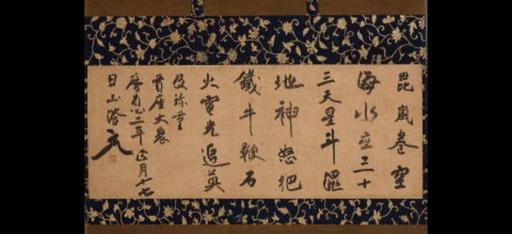 毘嵐巻空
海水立三十
三天星斗濕
地神怒把
鐵牛鞭石
火電光追莫
及珎重
首座大衆
暦応二年正月十七
日山澄